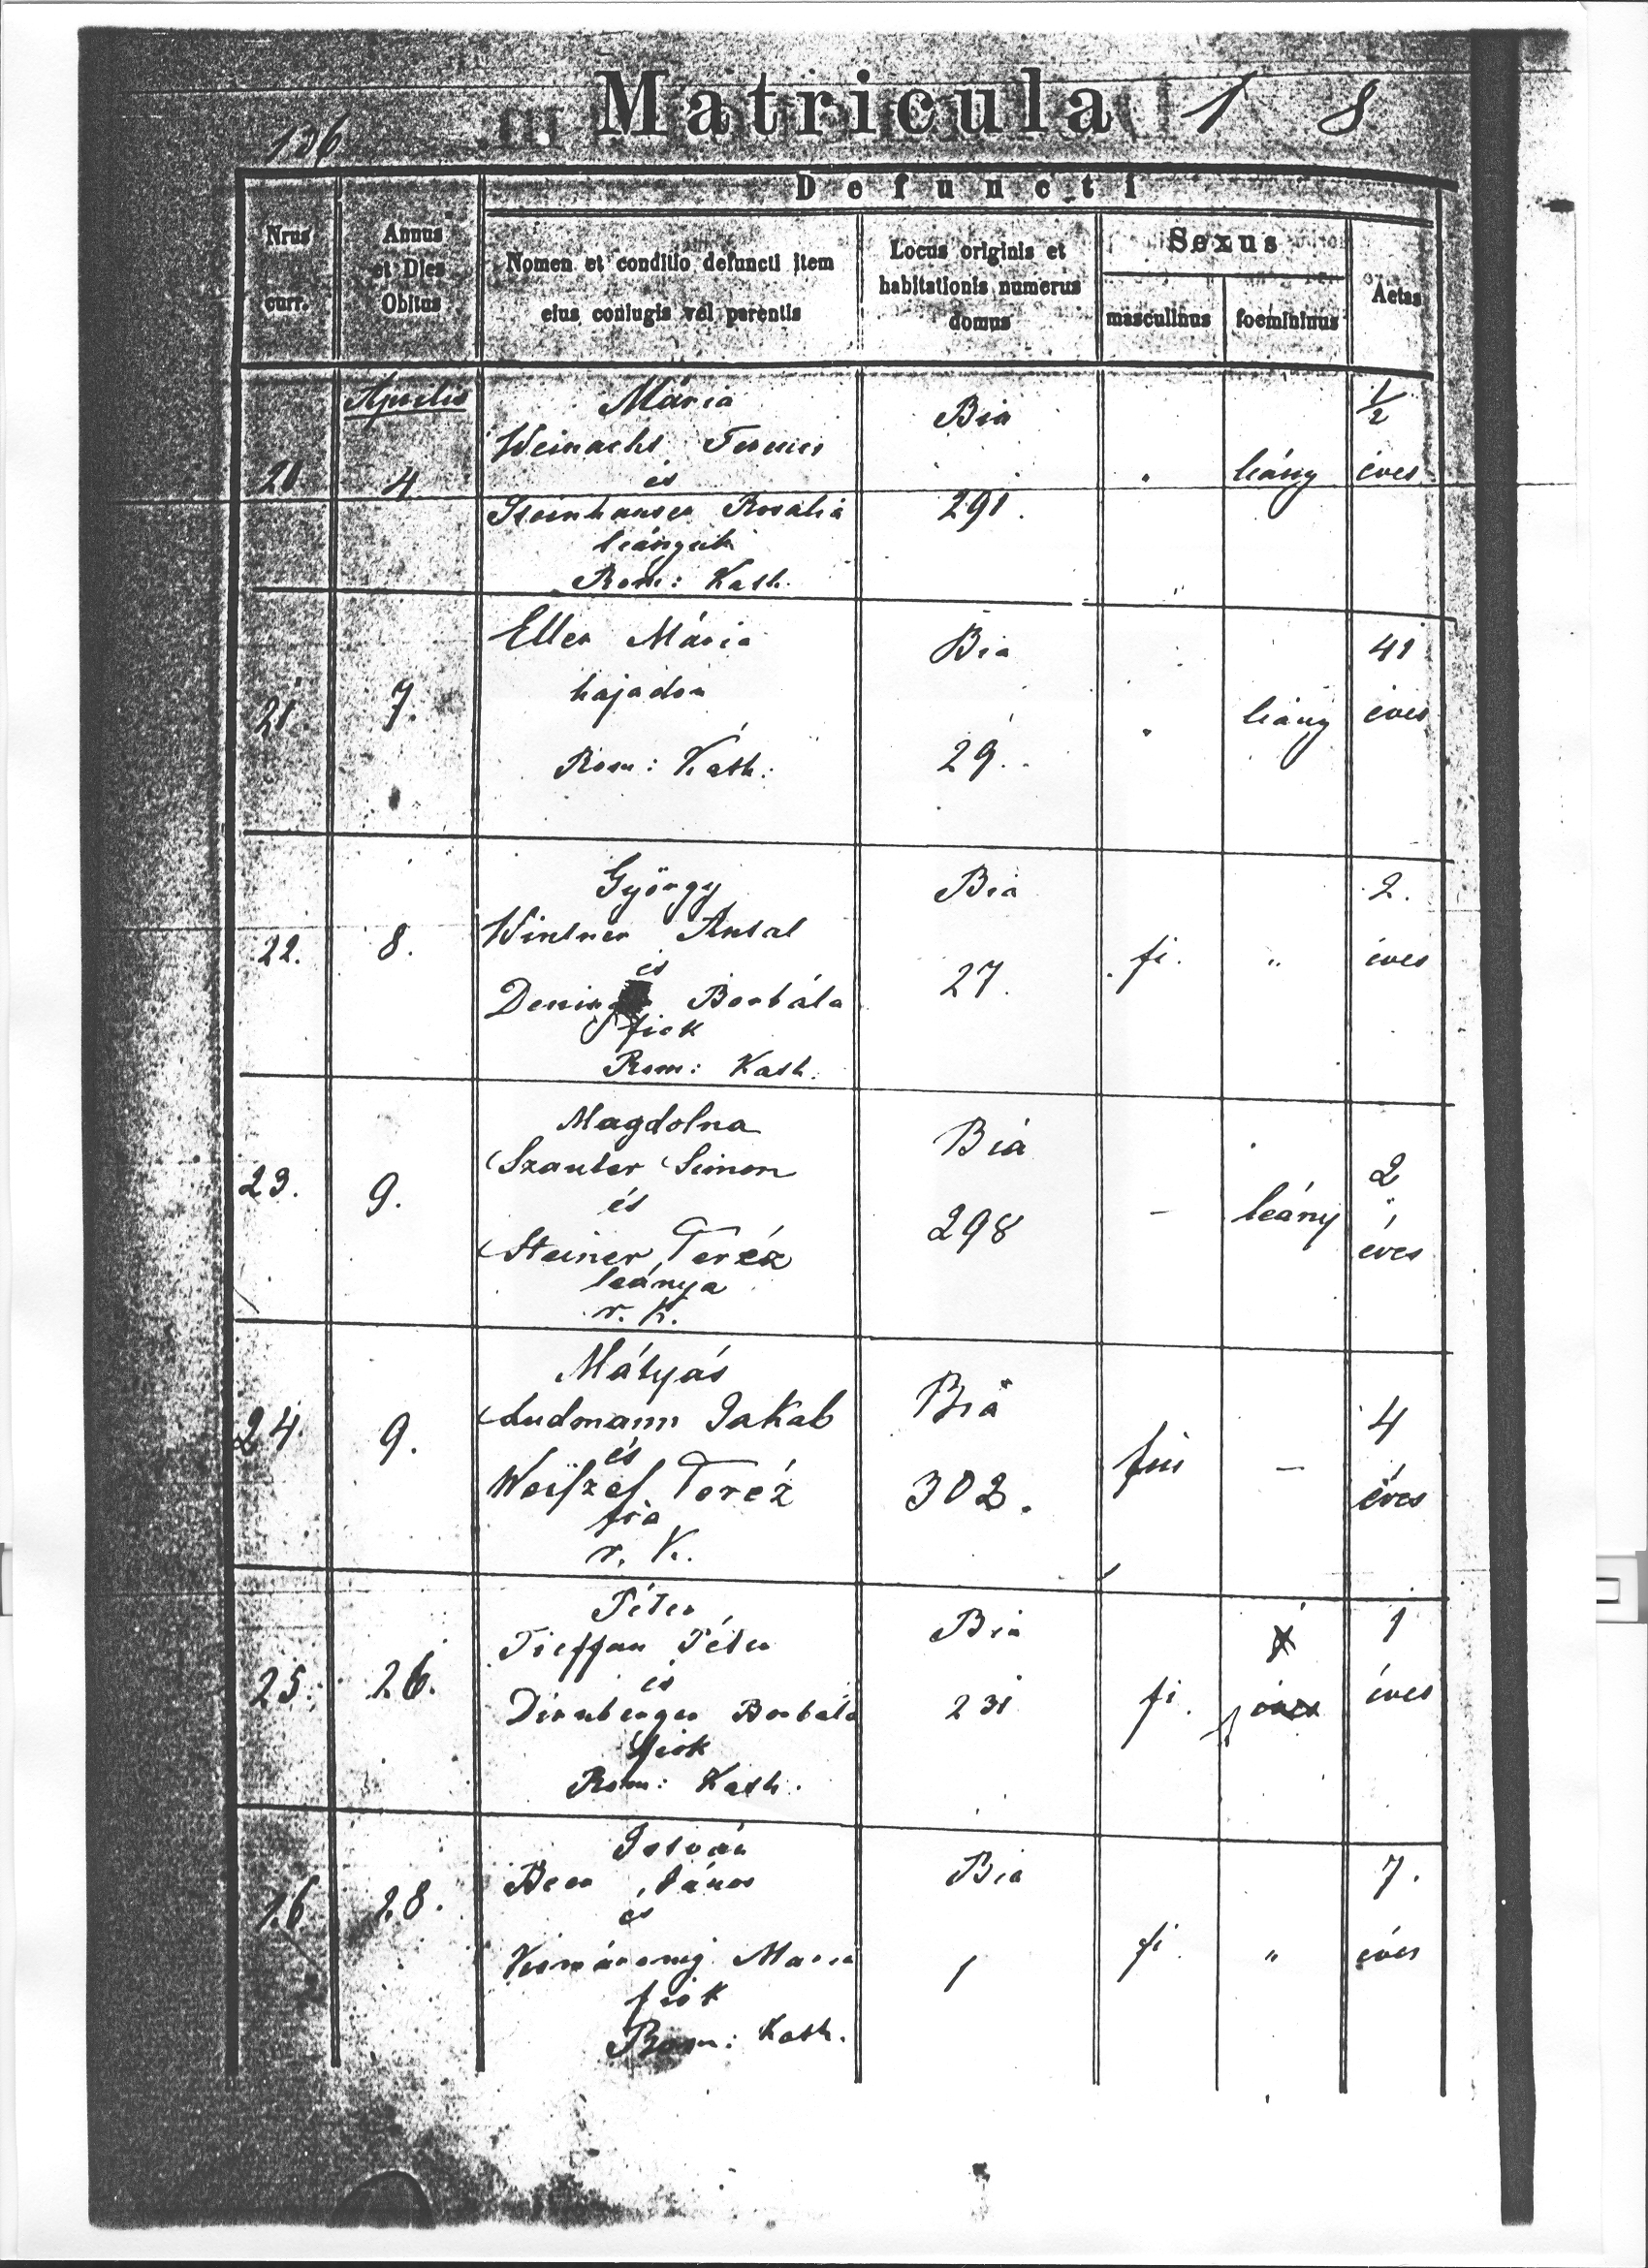 Matricula 1 8
Defuncti
Nrus curr.
Annus et Dies Obitus
Nomen et conditio defuncti item eius coniugis vel parentis
Locus originis et habitationis numerus domus
Sexus
masculinus
foemininus
Aetas
Aprilis
20
4
Mária
Weinacht
és
Rosalia
leányuk
Rom: Kath.
Bia
291.
leány
1/2
éves
21.
7.
Eller Mária
hajadon
Rom: Kath:
Bia
29.
leány
41
éves
22.
8.
György
Wintner Antal
és
Borbála
fiok
Rom: Kath.
Bia
27.
fi.
"
2.
éves
23.
9.
Magdolna
Szauter Simon
és
Steiner Teréz
leánya
r. K.
Bia
298
-
leány
2
éves
24.
9.
Mátyás
Ludmann Jakab
és
Teréz
fia
r. K.
Bia
302.
fiu
-
4
éves
25.
26.
Péter
Péter
és
Dirnberger Borbála
fiok
Rom: Kath.
Bia
231
fi.
1
éves
28.
István
Beer János
és
Maria
fiok
Rom: Kath.
Bia
1
fi.
"
7.
éves